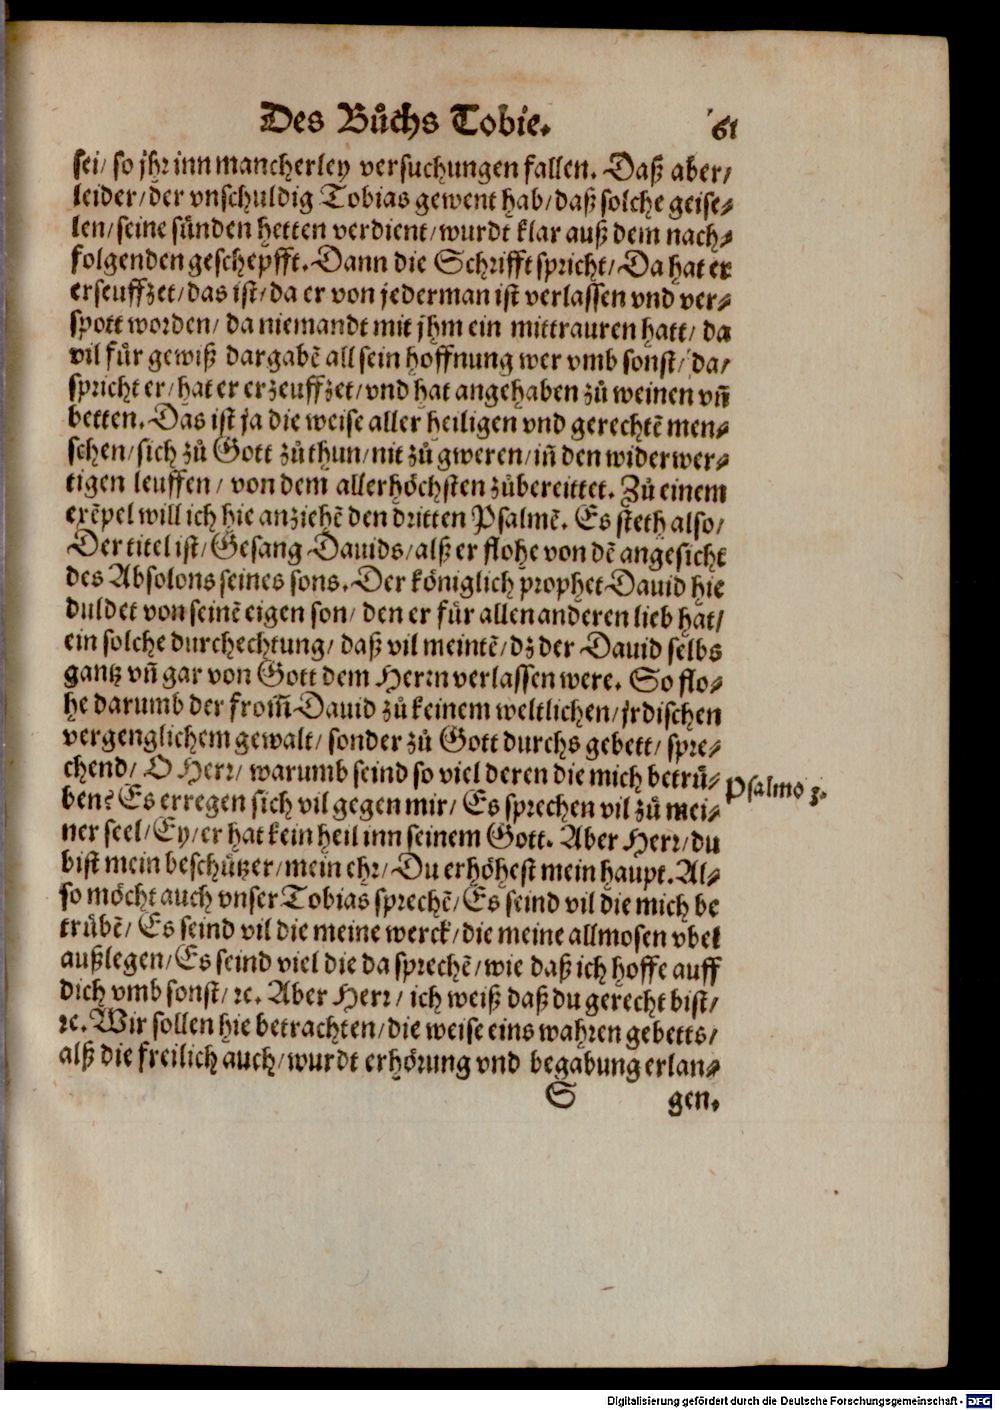 Des Bůchs Tobie. 61
sei/ so jhr inn mancherley versuchungen fallen. Daß aber/
leider/ der vnschuldig Tobias gewent hab/ daß solche geise⸗
len/ seine sünden hetten verdient/ wurdt klar auß dem nach⸗
folgenden geschepfft. Dann die Schrifft spricht/ Da hat er
erseuffzet/ das ist/ da er von jederman ist verlassen vnd ver⸗
spott worden/ da niemandt mit jhm ein mittrauren hatt/ da
vil für gewiß dargabẽ all sein hoffnung wer vmb sonst/ da/
spricht er/ hat er erzeuffzet/ vnd hat angehaben zů weinen vñ
betten. Das ist ja die weise aller heiligen vnd gerechtẽ men⸗
schen/ sich zů Gott zů thun/ nit zů gweren/ iñ den widerwer⸗
tigen leuffen/ von dem allerhöchsten zůbereittet. Zů einem
exẽpel will ich hie anziehẽ den dritten Psalmẽ. Es steth also/
Der titel ist/ Gesang Dauids/ alß er flohe von dẽ angesicht
des Absolons seines sons. Der königlich prophet Dauid hie
duldet von seinẽ eigen son/ den er für allen anderen lieb hat/
ein solche durchechtung/ daß vil meintẽ/ dz der Dauid selbs
gantz vñ gar von Gott dem Herrn verlassen were. So flo⸗
he darumb der from̃ Dauid zů keinem weltlichen/ jrdischen
vergenglichem gewalt/ sonder zů Gott durchs gebett/ spre⸗
chend/ O Herr/ warumb seind so viel deren die mich betrü⸗
ben? Es erregen sich vil gegen mir/ Es sprechen vil zů mei⸗
Psalmo 3.
ner seel/ Ey/ er hat kein heil inn seinem Gott. Aber Herr/ du
bist mein beschützer/ mein ehr/ Du erhöhest mein haupt. Al⸗
so möcht auch vnser Tobias sprechẽ/ Es seind vil die mich be
trübẽ/ Es seind vil die meine werck/ die meine allmosen vbel
außlegen/ Es seind viel die da sprechẽ/ wie daß ich hoffe auff
dich vmb sonst/ ꝛc. Aber Herr/ ich weiß daß du gerecht bist/
ꝛc. Wir sollen hie betrachten/ die weise eins wahren gebetts/
alß die freilich auch/ wurdt erhörung vnd begabung erlan⸗
S gen.
Digitalisierung gefördert durch die Deutsche Forschungsgemeinschaft - DFG